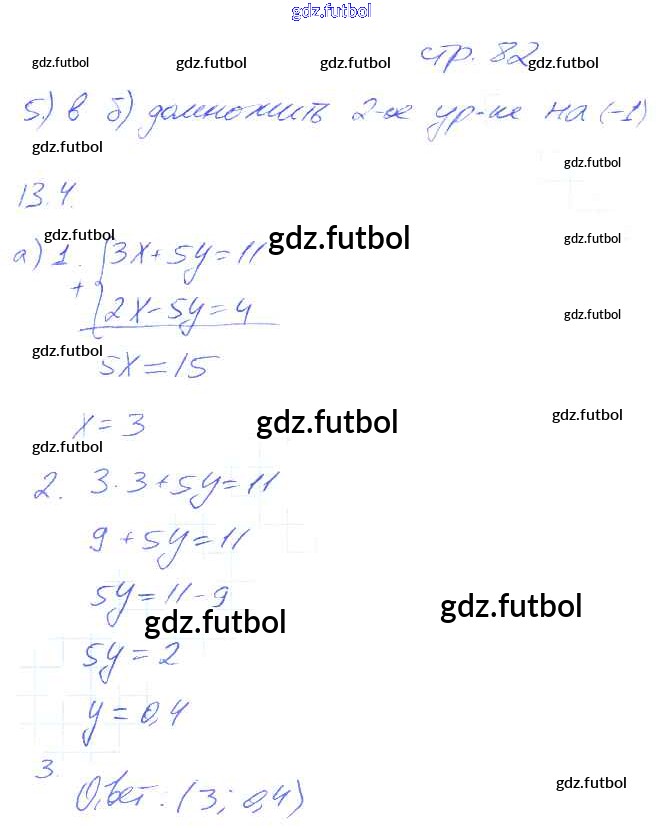 gdz.futbol
gdz.futbol gdz.futbol gdz.futbol стр. 82 gdz.futbol
5.) в б) домножить 2-ое ур-ие на (-1)
gdz.futbol gdz.futbol
13.4.
gdz.futbol gdz.futbol gdz.futbol
а) 1. { 3x + 5y = 11
+ 2x - 5y = 4
gdz.futbol
gdz.futbol 5x = 15
x = 3 gdz.futbol gdz.futbol
gdz.futbol
2. 3 · 3 + 5y = 11
9 + 5y = 11
5y = 11 - 9
gdz.futbol gdz.futbol
5y = 2
y = 0,4
3.
Ответ: (3; 0,4) gdz.futbol